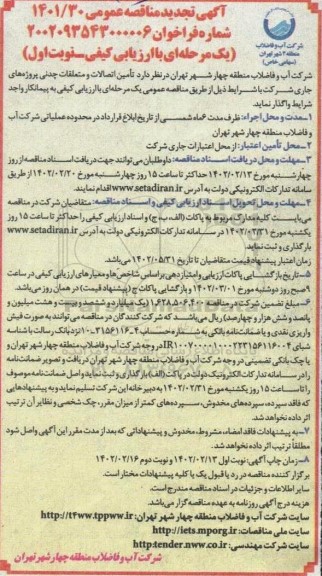 آگهی تجدید مناقصه عمومی ۱۴۰۱/۳۰
شماره فراخوان ۲۰۰۲۰۹۳۵۴۳۰۰۰۰۰۶
(یک مرحله‌ای با ارزیابی کیفی-نوبت اول)
شرکت آب و فاضلاب
منطقه ۴ شهر تهران
(سهامی خاص)
شرکت آب و فاضلاب منطقه چهار شهر تهران در نظر دارد تأمین اتصالات و متعلقات چدنی پروژه‌های
جاری شرکت با شرایط ذیل از طریق مناقصه عمومی یک مرحله‌ای با ارزیابی کیفی به پیمانکار واجد
شرایط واگذار نماید.
۱-مدت و محل اجراء: ظرف مدت ۶ ماه شمسی از تاریخ ابلاغ قرارداد در محدوده عملیاتی شرکت آب
و فاضلاب منطقه چهار شهر تهران
۲-محل تأمین اعتبار: از محل اعتبارات جاری شرکت
۳-مهلت و محل دریافت اسناد مناقصه: داوطلبان می‌توانند جهت دریافت اسناد مناقصه از روز
چهارشنبه مورخ ۱۴۰۲/۰۲/۱۳ حداکثر تا ساعت ۱۵ روز چهارشنبه مورخ ۱۴۰۲/۰۲/۲۰ از طریق
سامانه تدارکات الکترونیکی دولت به آدرس www.setadiran.ir اقدام نمایند.
۴-مهلت و محل تحویل اسناد ارزیابی کیفی و اسناد مناقصه: متقاضیان شرکت در مناقصه
می‌بایست کلیه مدارک مربوط به پاکات (الف، ب، ج) و اسناد ارزیابی کیفی را حداکثر تا ساعت ۱۵ روز
یکشنبه مورخ ۱۴۰۲/۰۲/۳۱ در سامانه تدارکات الکترونیکی دولت به آدرس www.setadiran.ir
بارگذاری و ثبت نماید.
زمان اعتبار پیشنهاد قیمت متقاضیان تا تاریخ ۱۴۰۲/۰۵/۳۱ می‌باشد.
۵-تاریخ بازگشایی پاکات ارزیابی و امتیازدهی بر اساس شاخص‌ها و معیارهای ارزیابی کیفی در ساعت
۹ صبح روز دوشنبه مورخ ۱۴۰۲/۰۳/۰۱ و بازگشایی پاکات ج (پیشنهاد قیمت) در همان روز می‌باشد.
۶-مبلغ تضمین شرکت در مناقصه ۱،۶۲۸،۵۰۶،۴۰۰ ریال (یک میلیارد و ششصد و بیست و هشت میلیون و
پانصد و شش هزار و چهارصد) ریال می‌باشد که شرکت کنندگان در مناقصه می‌توانند به صورت فیش
واریزی نقدی و یا ضمانت‌نامه بانکی به شماره حساب ۳۱۵۶۱۱۶۰۴ نزد بانک رسالت با شناسه
شبای در وجه شرکت آب و فاضلاب منطقه چهار شهر تهران و
یا چک بانکی تضمینی در وجه شرکت آب و فاضلاب منطقه چهار شهر تهران دریافت و تصویر ضمانت‌نامه
را در سامانه تدارکات الکترونیک دولت در پاکت (الف) بارگذاری و ثبت نماید و اصل ضمانت‌نامه موصوف
را تا ساعت ۱۵ روز یکشنبه مورخ ۱۴۰۲/۰۲/۳۱ به دبیرخانه این شرکت تسلیم نماید و به پیشنهادهایی
که فاقد سپرده، سپرده‌های مخدوش، سپرده‌های کمتر از میزان مقرر، چک شخصی و نظایر آن ترتیب
اثر داده نخواهد شد.
۷-به پیشنهادات فاقد امضاء، مشروط، مخدوش و پیشنهاداتی که بعد از مدت مقرر این آگهی واصل شود
مطلقاً ترتیب اثر داده نخواهد شد.
۸-زمان چاپ آگهی: نوبت اول ۱۴۰۲/۰۲/۱۳ و نوبت دوم ۱۴۰۲/۰۲/۱۶
برگزار کننده مناقصه در رد یا قبول یک یا کلیه پیشنهادات مختار است.
سایر اطلاعات و جزئیات در اسناد مناقصه مندرج است.
هزینه درج آگهی روزنامه به عهده مناقصه گزار می‌باشد.
سایت شرکت آب و فاضلاب منطقه چهار شهر تهران: http://t4ww.tppww.ir
سایت ملی مناقصات: http://iets.mporg.ir
سایت شرکت مهندسی: http:tender.nww.co.ir
شرکت آب و فاضلاب منطقه چهار شهر تهران